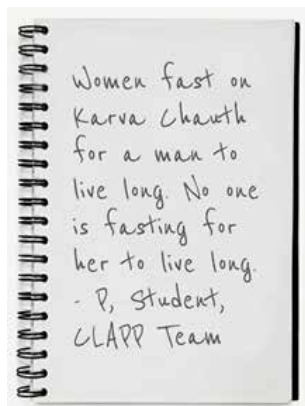 Women fast on
Karva Chauth
for a man to
live long. No one
is fasting for
her to live long.
- P, Student,
CLAPP Team